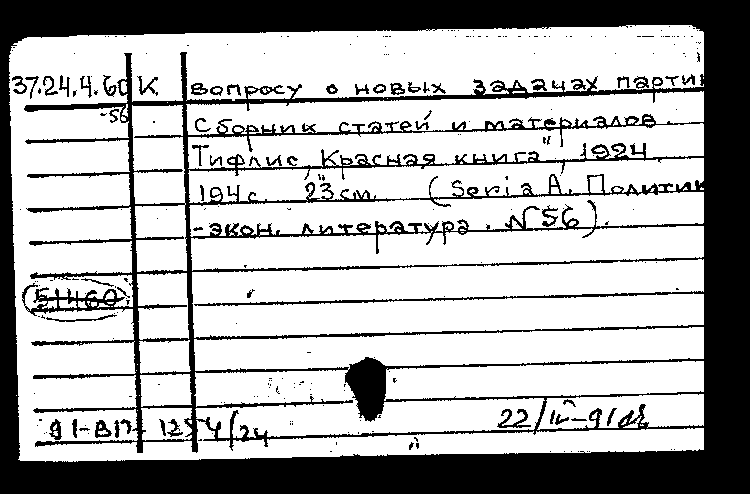 37.24.4.60 К вопросу о новых задачах партии
-56
Сборник статей и материалов.
Тифлис, "Красная книга", 1924.
194 с. 23 см. (Seria A. Политик
-экон. литература. N 56).
51460
91-ВП- 1254/24 22/IV-91